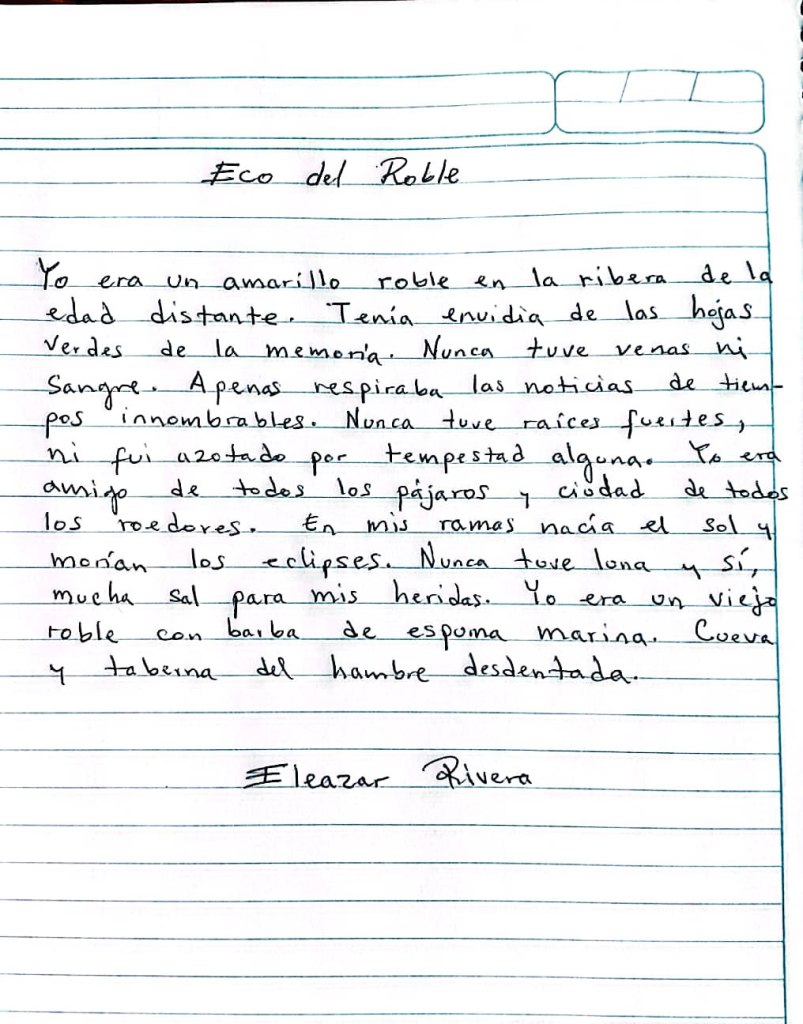 Eco del Roble
Yo era un amarillo roble en la ribera de la
edad distante. Tenía envidia de las hojas
verdes de la memoria. Nunca tuve venas ni
sangre. Apenas respiraba las noticias de tiem-
pos innombrables. Nunca tuve raíces fuertes,
ni fui azotado por tempestad alguna. Yo era
amigo de todos los pájaros y ciudad de todos
los roedores. En mis ramas nacía el sol y
morían los eclipses. Nunca tuve luna y sí,
mucha sal para mis heridas. Yo era un viejo
roble con barba de espuma marina. Cueva
y taberna del hambre desdentada.
Eleazar Rivera